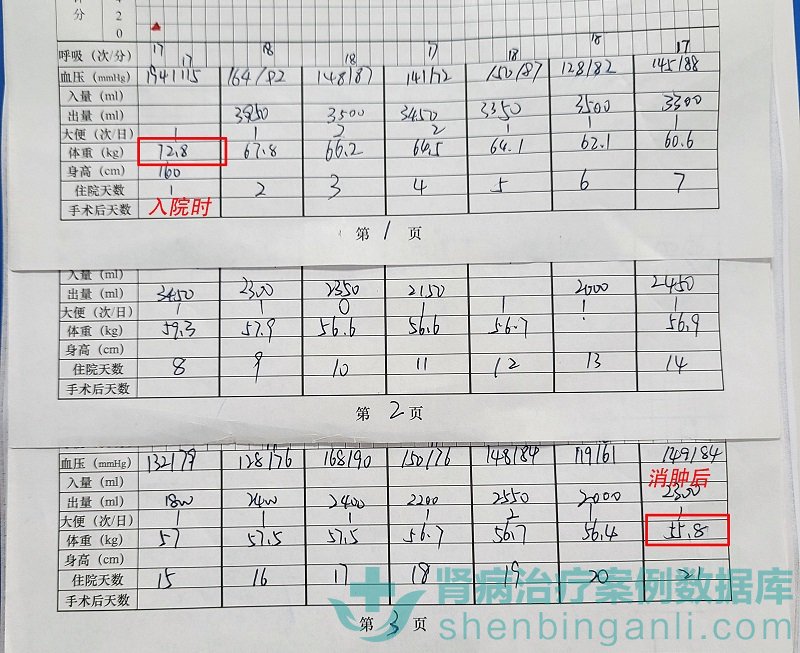 分
4 2 0
呼吸（次/分） 17 17 18 18 17 18 18 17
血压（mmHg） 164/92 148/87 141/72 150/87 128/82 145/88
入量（ml）
出量（ml） 3950 3500 3450 3350 3500 3300
大便（次/日） 1 1 2 2 1 1 1
体重（kg） 72.8 67.8 66.2 64.5 64.1 62.1 60.6
身高（cm） 160
住院天数 1 2 3 4 5 6 7
手术后天数 入院时
第 1 页
入量（ml）
出量（ml） 3450 2300 2350 2150 2000 2450
大便（次/日） 1 1 0 1 1 1 1
体重（kg） 59.3 57.9 56.6 56.6 56.7 56.9
身高（cm）
住院天数 8 9 10 11 12 13 14
手术后天数
第 2 页
血压（mmHg） 132/79 128/76 168/90 150/76 148/84 119/61 149/84
入量（ml） 消肿后
出量（ml） 1800 2400 2400 2200 2550 2000 2300
大便（次/日） 1 1 1 1 2 1 1
体重（kg） 57 57.5 57.5 56.7 56.7 56.4 55.8
身高（cm）
住院天数 15 16 17 18 19 20 21
手术后天数
第 3 页
肾病治疗案例数据库
shenbinganli.com